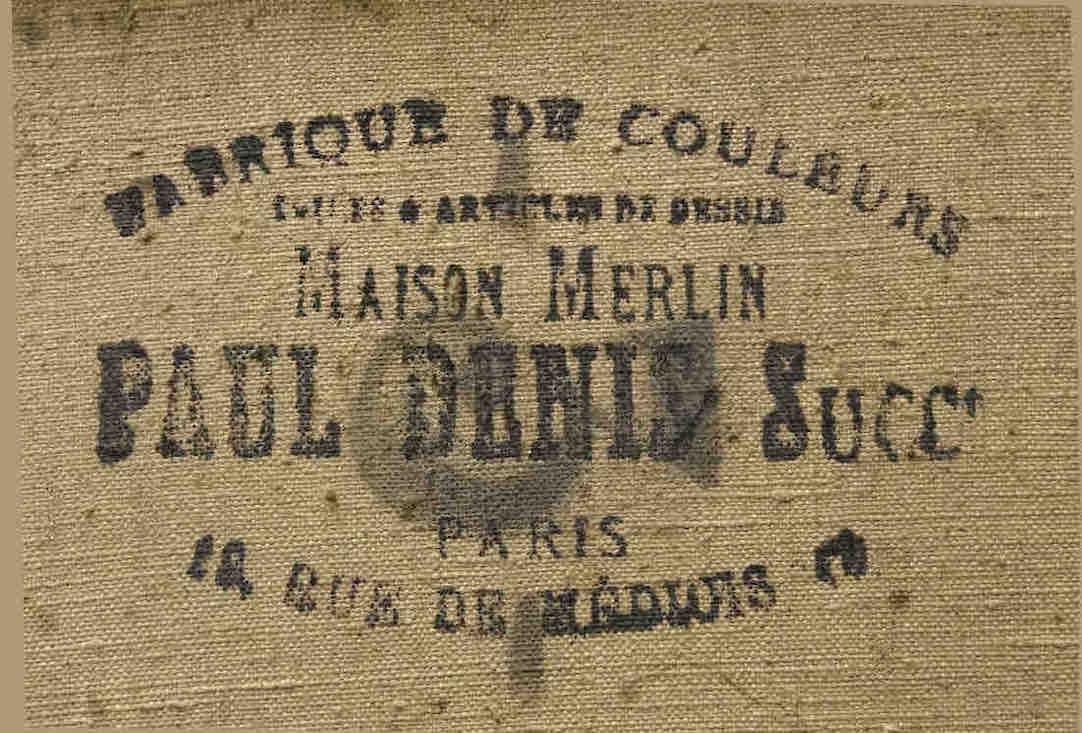 FABRIQUE DE COULEURS
TOILES & ARTICLES DE DESSIN
MAISON MERLIN
PAUL DENIS SUCCR
PARIS
RUE DE MÉDICIS